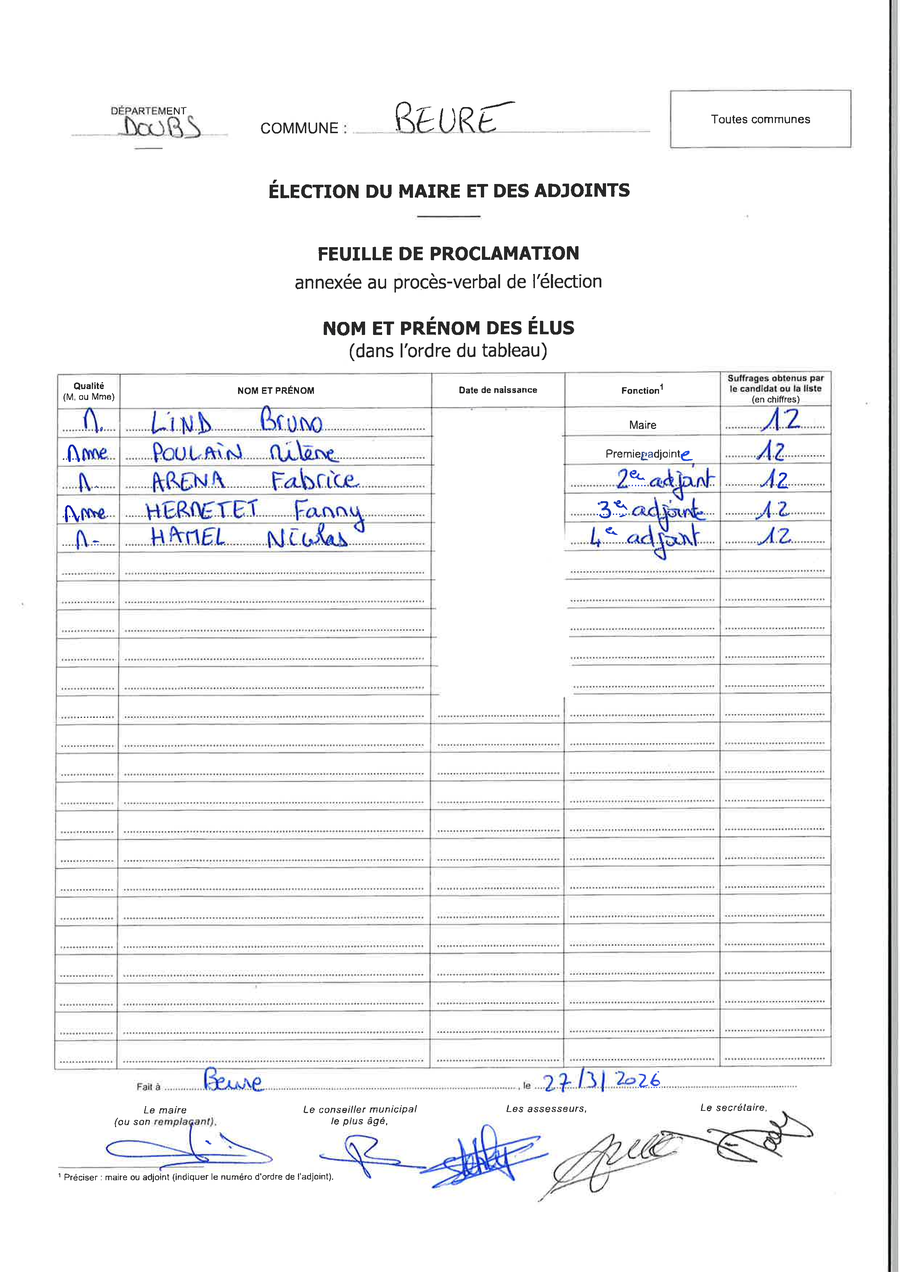 DÉPARTEMENT
DOUBS
COMMUNE : BEURE
Toutes communes
ÉLECTION DU MAIRE ET DES ADJOINTS
FEUILLE DE PROCLAMATION
annexée au procès-verbal de l'élection
NOM ET PRÉNOM DES ÉLUS
(dans l'ordre du tableau)
Qualité (M. ou Mme) NOM ET PRÉNOM Date de naissance Fonction¹ Suffrages obtenus par le candidat ou la liste (en chiffres)
M. LIND Bruno Maire 12
Mme POULAIN Milène Premier adjointe 12
M. ARENA Fabrice 2e adjoint 12
Mme HERNETET Fanny 3e adjointe 12
M. HAMEL Nicolas 4e adjoint 12
Fait à Beure, le 27/3/2026
Le maire (ou son remplaçant), Le conseiller municipal le plus âgé, Les assesseurs, Le secrétaire,
¹ Préciser : maire ou adjoint (indiquer le numéro d'ordre de l'adjoint).